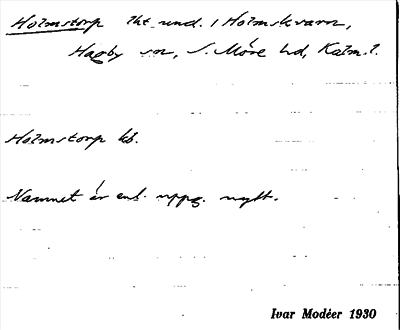 Holmstorp lht und. i Holmskvarn,
Hagby sn, S. Möre hd, Kalm. l.
Holmstorp kb.
Namnet är enl. uppg. nytt.
Ivar Modéer 1930